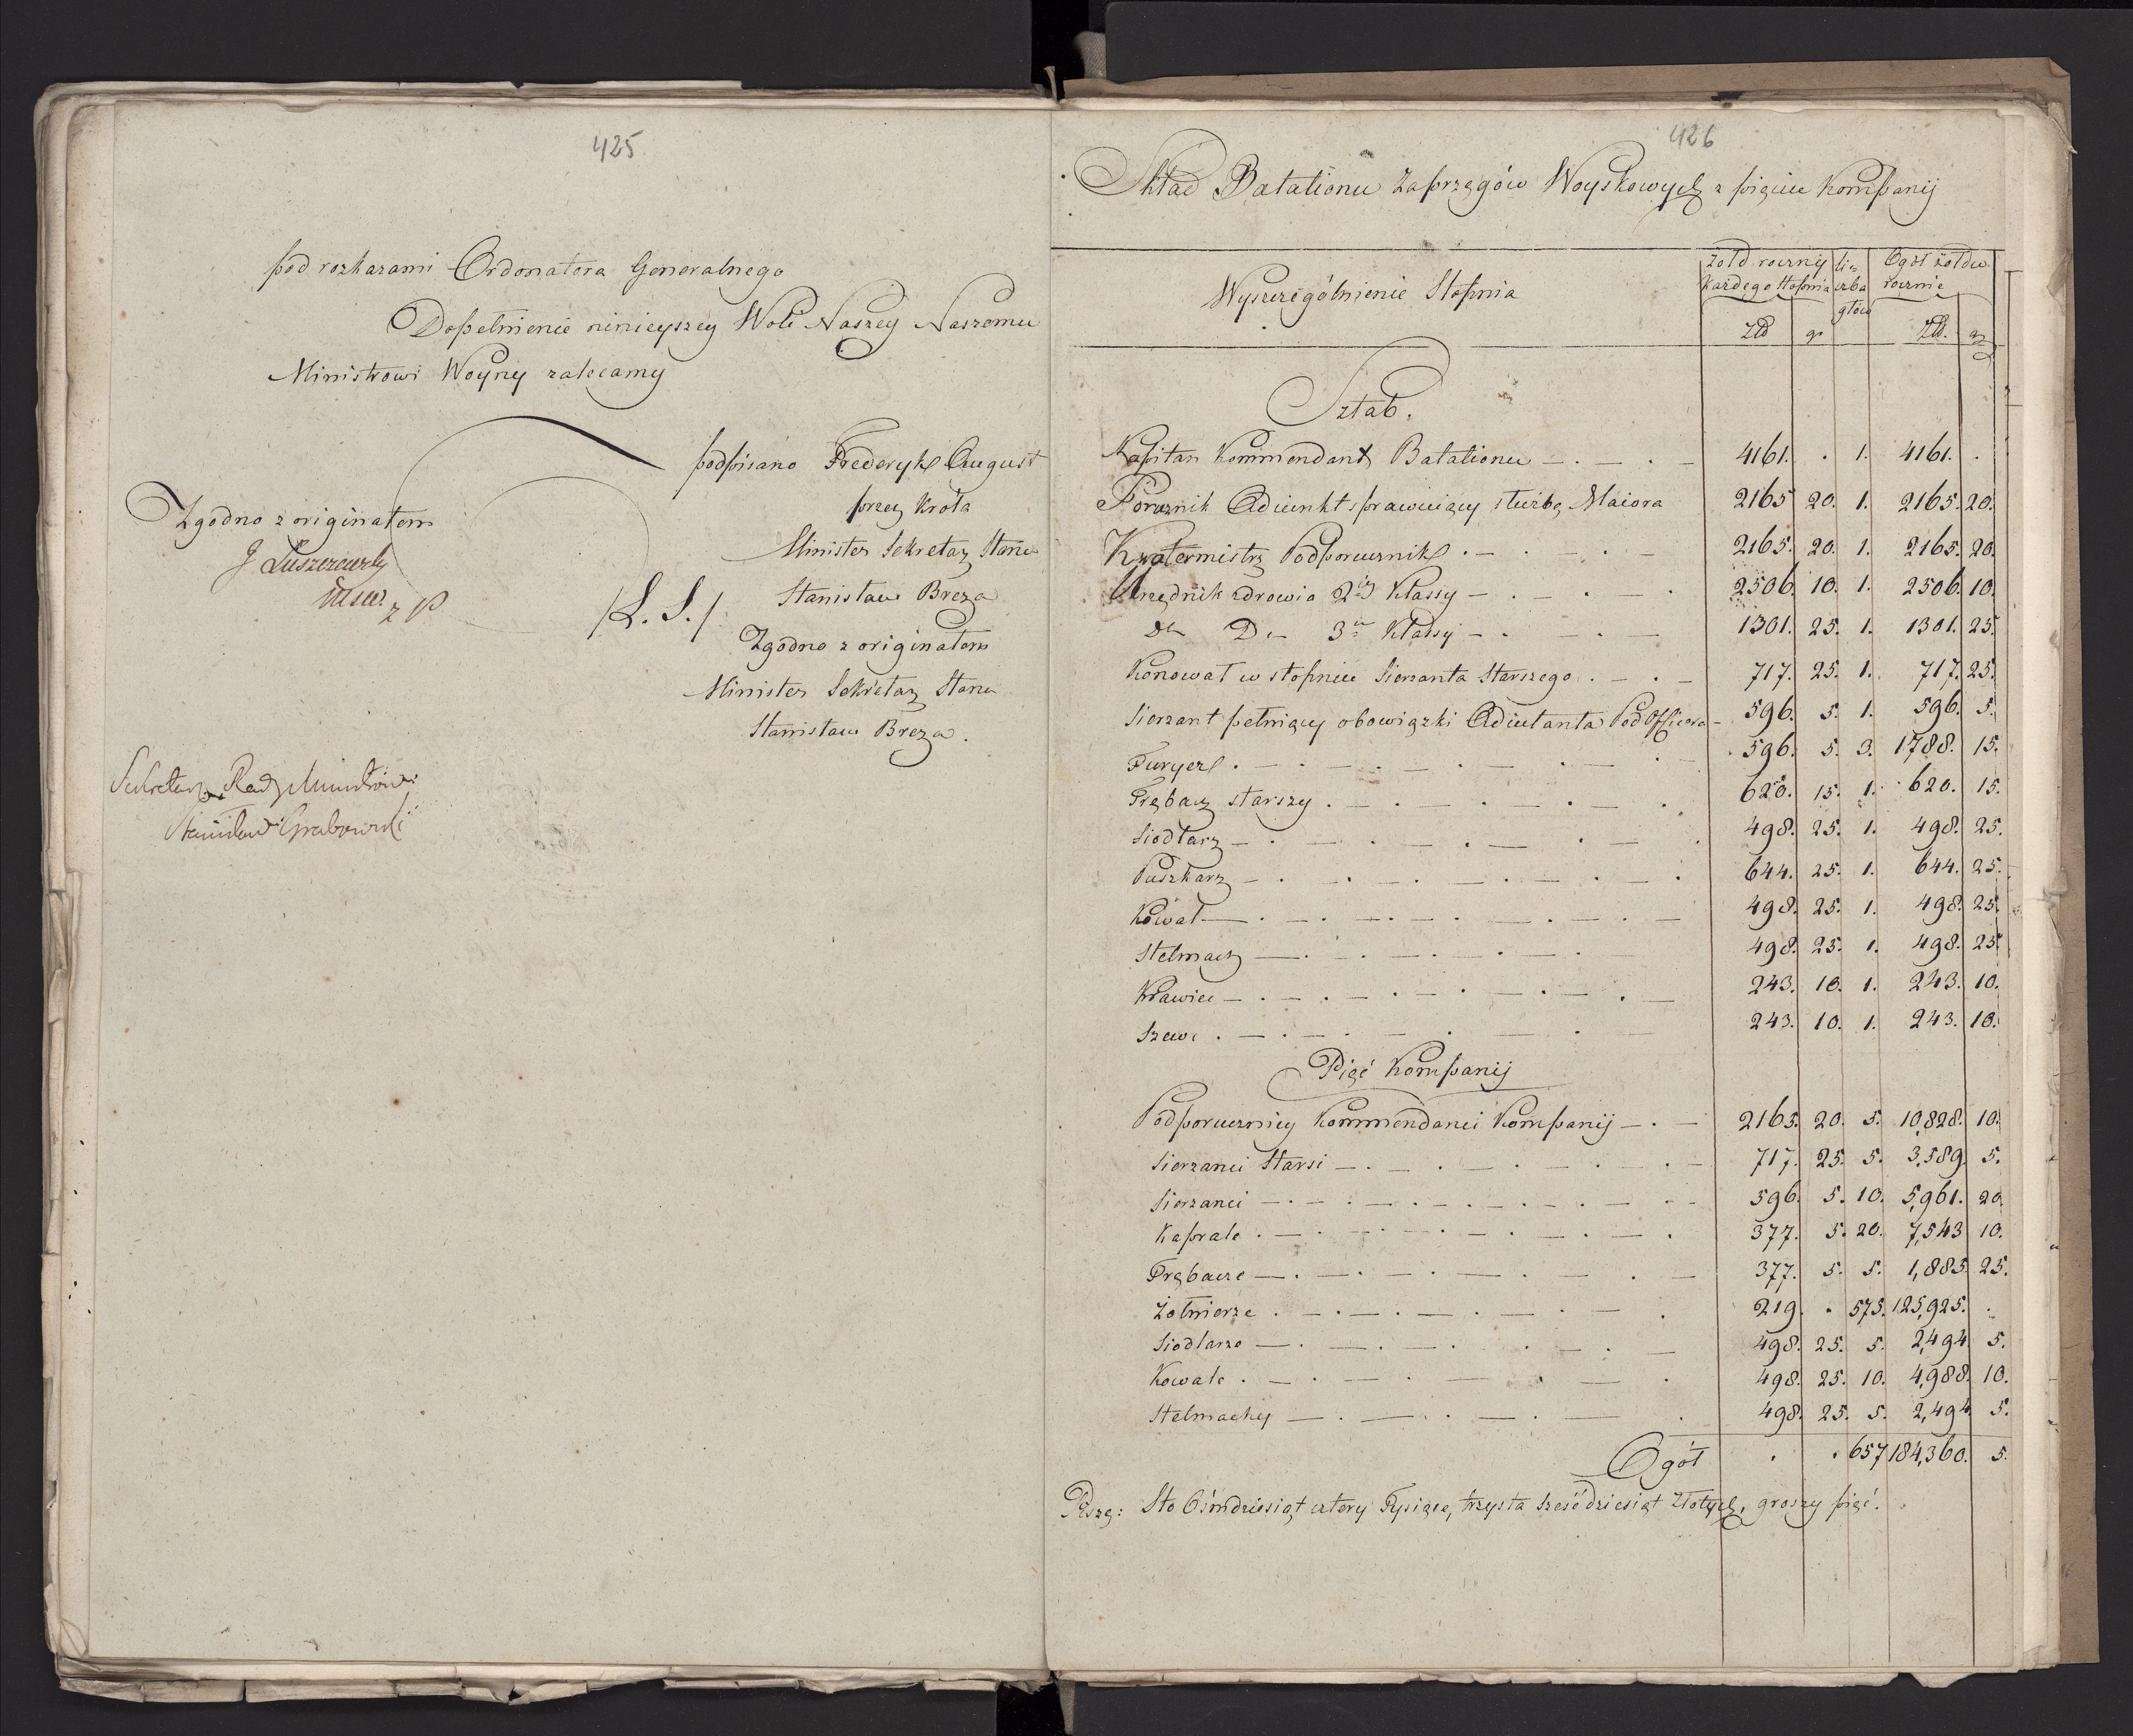 425
pod rozkazami Ordonatora Generalnego
Dopełnienie ninieyszey Woli Naszey Naszemu
Ministrowi Woyny zalecamy
podpisano Frederyk August
przez Króla
Minister Sekretarz Stanu
/L. S./ Stanisław Breza
Zgodno z originałem
Minister Sekretarz Stanu
Stanisław Breza.
Zgodno z originałem
Sekretarz Rady Ministrów
Stanisław Grabowski
426
Skład Batalionu Zaprzęgów Woyskowych z pięciu Kompanij
Wyszczególnienie Stopnia | Żołd roczny każdego stopnia | liczba głów | Ogół żołdu rocznie
Złd | gr | | Złd. | gr
Sztab.
Kapitan Kommendant Batalionu 4161. . 1. 4161. .
Porucznik Adiunkt sprawuiący służbę Maiora 2165 20. 1. 2165. 20.
Kwatermistrz Podporucznik 2165. 20. 1. 2165. 20.
Urzędnik zdrowia 2éy Klassy 2506. 10. 1. 2506. 10.
Do Do 3éy Klassy 1301. 25. 1. 1301. 25.
Konował w stopniu Sierżanta Starszego 717. 25. 1. 717. 25.
Sierżant pełniący obowiązki Adiutanta Pod Officera 596. 5. 1. 596. 5.
Furyer 596. 5. 3. 1788. 15.
Trębacz starszy 620. 15. 1. 620. 15.
Siodlarz 498. 25. 1. 498. 25.
Puszkarz 644. 25. 1. 644. 25.
Kowal 498. 25. 1. 498. 25.
Stelmach 498. 25. 1. 498. 25.
Krawiec 243. 10. 1. 243. 10.
Szewc 243. 10. 1. 243. 10.
Pięć Kompanij
Podporucznicy Kommendanci Kompanij 2165. 20. 5. 10,828. 10.
Sierżanci Starsi 717. 25. 5. 3,589. 5.
Sierżanci 596. 5. 10. 5,961. 20.
Kaprale 377. 5. 20. 7,543 10.
Trębacze 377. 5. 5. 1,885. 25.
Żołnierze 219. . 575. 125,925. .
Siodlarze 498. 25. 5. 2,494. 5.
Kowale 498. 25. 10. 4,988. 10.
Stelmachy 498. 25. 5. 2,494. 5.
Ogół . . 657 184,360. 5.
Sto Ośmdziesiąt cztery Tysiące, trzysta sześćdziesiąt Złotych, groszy pięć.